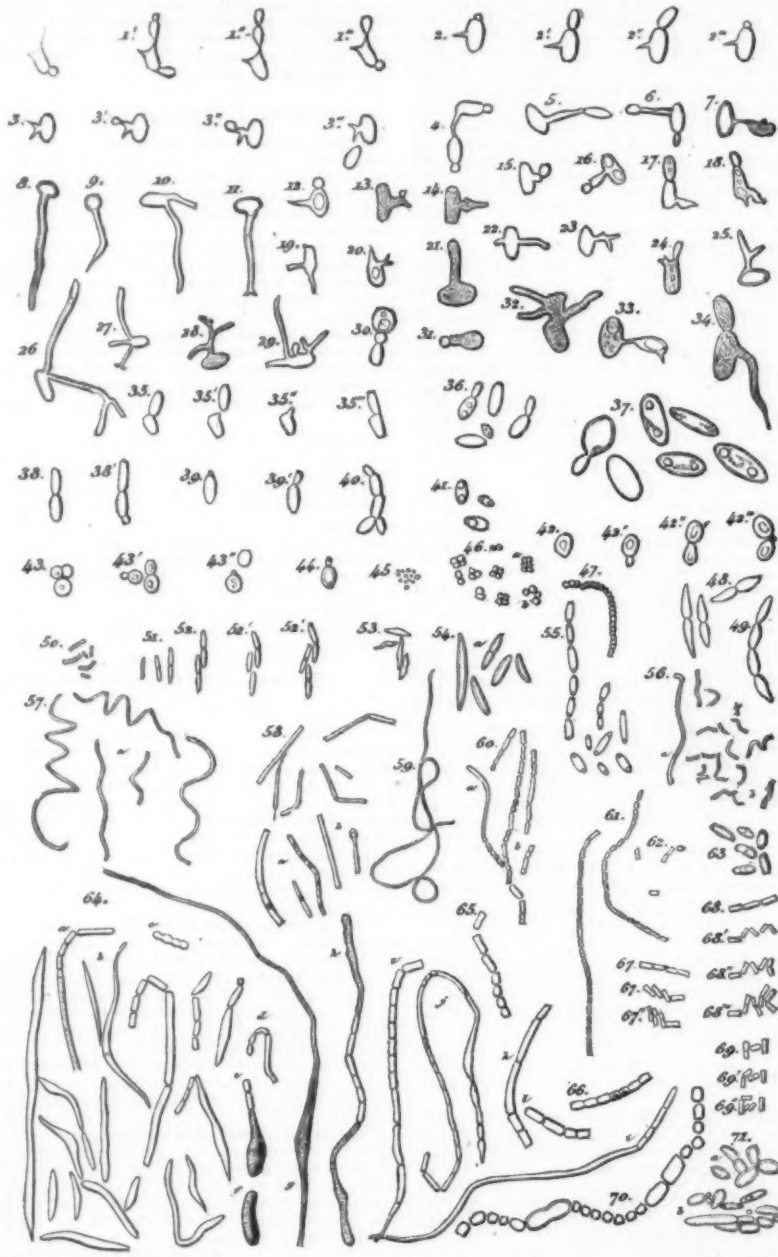 1' 1" 1''' 2. 2' 2" 2'''
3. 3' 3" 3''' 4. 5. 6. 7.
8. 9. 10. 11. 12. 13. 14. 15. 16. 17. 18.
19. 20. 21. 22. 23. 24. 25.
26 27. 28. 29. 30. 31. 32. 33. 34.
35. 35' 35" 35''' 36. 37.
38. 38' 39. 39' 40. 41.
42. 42' 42" 42'''
43. 43' 43" 44. 45 46. a b 47. 48.
50. 51. 52. 52' 52" 53. 54. a 55. 49.
57. a 58. 59. 60. 56. a
a b a b 61. 62. 63
64. 65. 68.
a b 67. 68'
67' 68"
67" 68'''
66. 69.
69'
69"
70. 72.